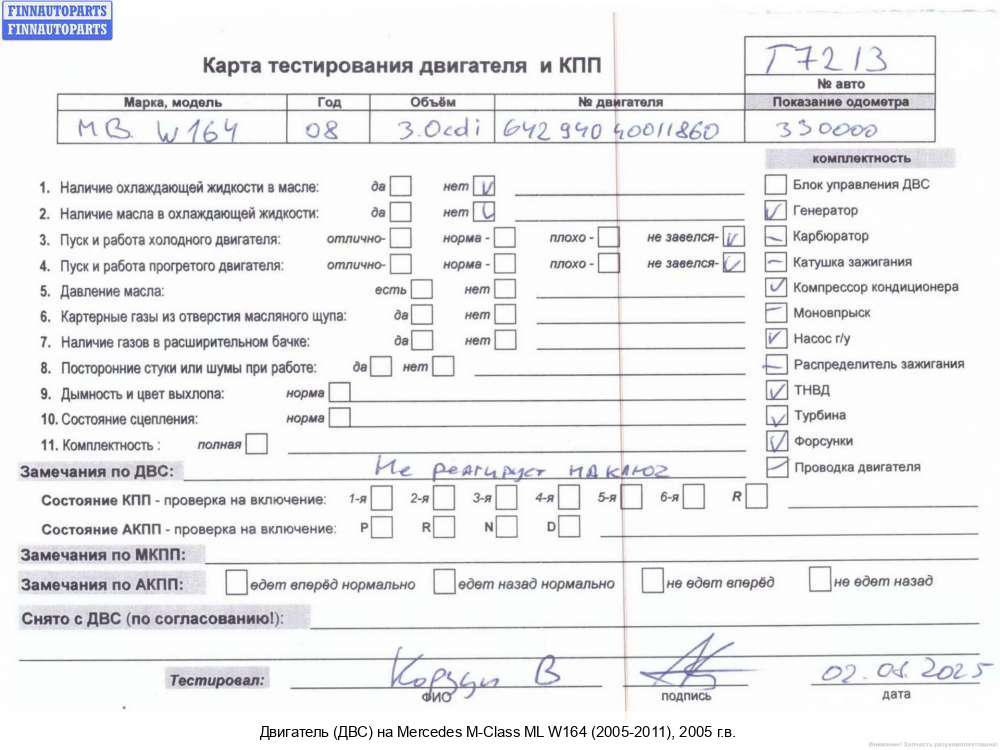 FINNAUTOPARTS
FINNAUTOPARTS
Карта тестирования двигателя и КПП
T7213
№ авто
Марка, модель Год Объём № двигателя Показание одометра
MB W164 08 3.0cdi 642 940 40011860 330000
комплектность
1. Наличие охлаждающей жидкости в масле: да нет Блок управления ДВС
2. Наличие масла в охлаждающей жидкости: да нет Генератор
3. Пуск и работа холодного двигателя: отлично- норма - плохо - не завелся- Карбюратор
4. Пуск и работа прогретого двигателя: отлично- норма - плохо - не завелся- Катушка зажигания
5. Давление масла: есть нет Компрессор кондиционера
6. Картерные газы из отверстия масляного щупа: да нет Моновпрыск
7. Наличие газов в расширительном бачке: да нет Насос г/у
8. Посторонние стуки или шумы при работе: да нет Распределитель зажигания
9. Дымность и цвет выхлопа: норма ТНВД
10. Состояние сцепления: норма Турбина
11. Комплектность : полная Форсунки
Замечания по ДВС: Не реагирует на ключ Проводка двигателя
Состояние КПП - проверка на включение: 1-я 2-я 3-я 4-я 5-я 6-я R
Состояние АКПП - проверка на включение: P R N D
Замечания по МКПП:
Замечания по АКПП: едет вперёд нормально едет назад нормально не едет вперёд не едет назад
Снято с ДВС (по согласованию!):
Тестировал: В
ФИО подпись дата
Двигатель (ДВС) на Mercedes M-Class ML W164 (2005-2011), 2005 г.в.